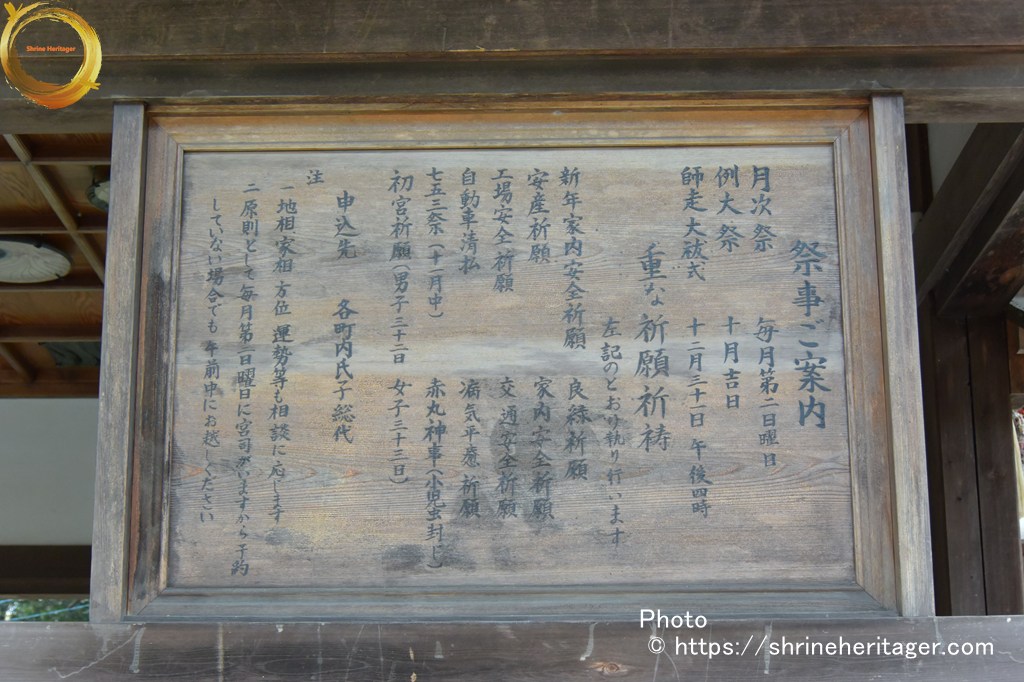 祭事ご案内
月次祭 毎月第二日曜日
例大祭 十月吉日
師走大祓式 十二月三十一日 午後四時
重な祈願祈祷
左記のとおり執り行います
新年家内安全祈願 良縁祈願
安産祈願 家内安全祈願
工場安全祈願 交通安全祈願
自動車清払 病気平癒祈願
七五三祭(十一月中) 赤丸神事(小児虫封じ)
初宮祈願(男子三十二日 女子三十三日)
申込先 各町内氏子総代
注
一 地相 家相 方位 運勢等も相談に応じます
二 原則として毎月第二日曜日に宮司がいますから予約
していない場合でも午前中にお越しください
Shrine Heritager
Photo
© https://shrineheritager.com